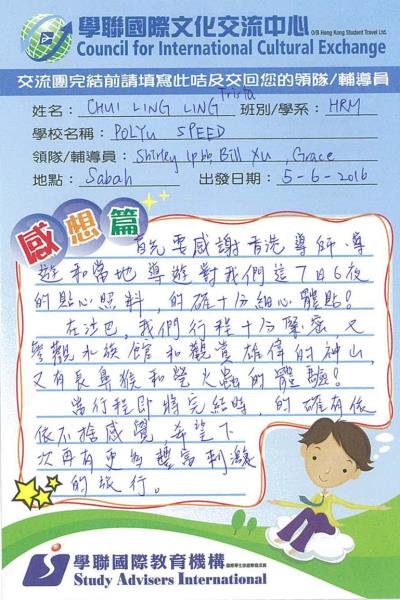 學聯國際文化交流中心
O/B Hong Kong Student Travel Ltd.
Council for International Cultural Exchange
交流團完結前請填寫此咭及交回您的領隊/輔導員
姓名：CHUI LING LING Trista 班別/學系：HRM
學校名稱：POLYU SPEED
領隊/輔導員：Shirley Ip Bill Xu, Grace
地點：Sabah 出發日期：5-6-2016
感想篇
首先要感謝香港導師、導
遊和當地導遊對我們這7日6夜
的貼心照料，的確十分細心體貼！
在沙巴，我們行程十分緊密，又
參觀水族館和觀賞雄偉的神山，
又有長鼻猴和螢火蟲的體驗！
當行程即將完結時，的確有依
依不捨感覺，希望下
次再有更為豐富刺激
的旅行。
學聯國際教育機構
Study Advisers International